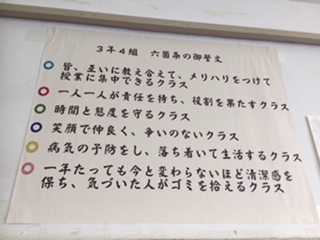 3年4組 六箇条の御誓文
皆、互いに教え合えて、メリハリをつけて
授業に集中できるクラス
一人一人が責任を持ち、役割を果たすクラス
時間と態度を守るクラス
笑顔で仲良く、争いのないクラス
病気の予防をし、落ち着いて生活するクラス
一年たっても今と変わらないほど清潔感を
保ち、気づいた人がゴミを拾えるクラス